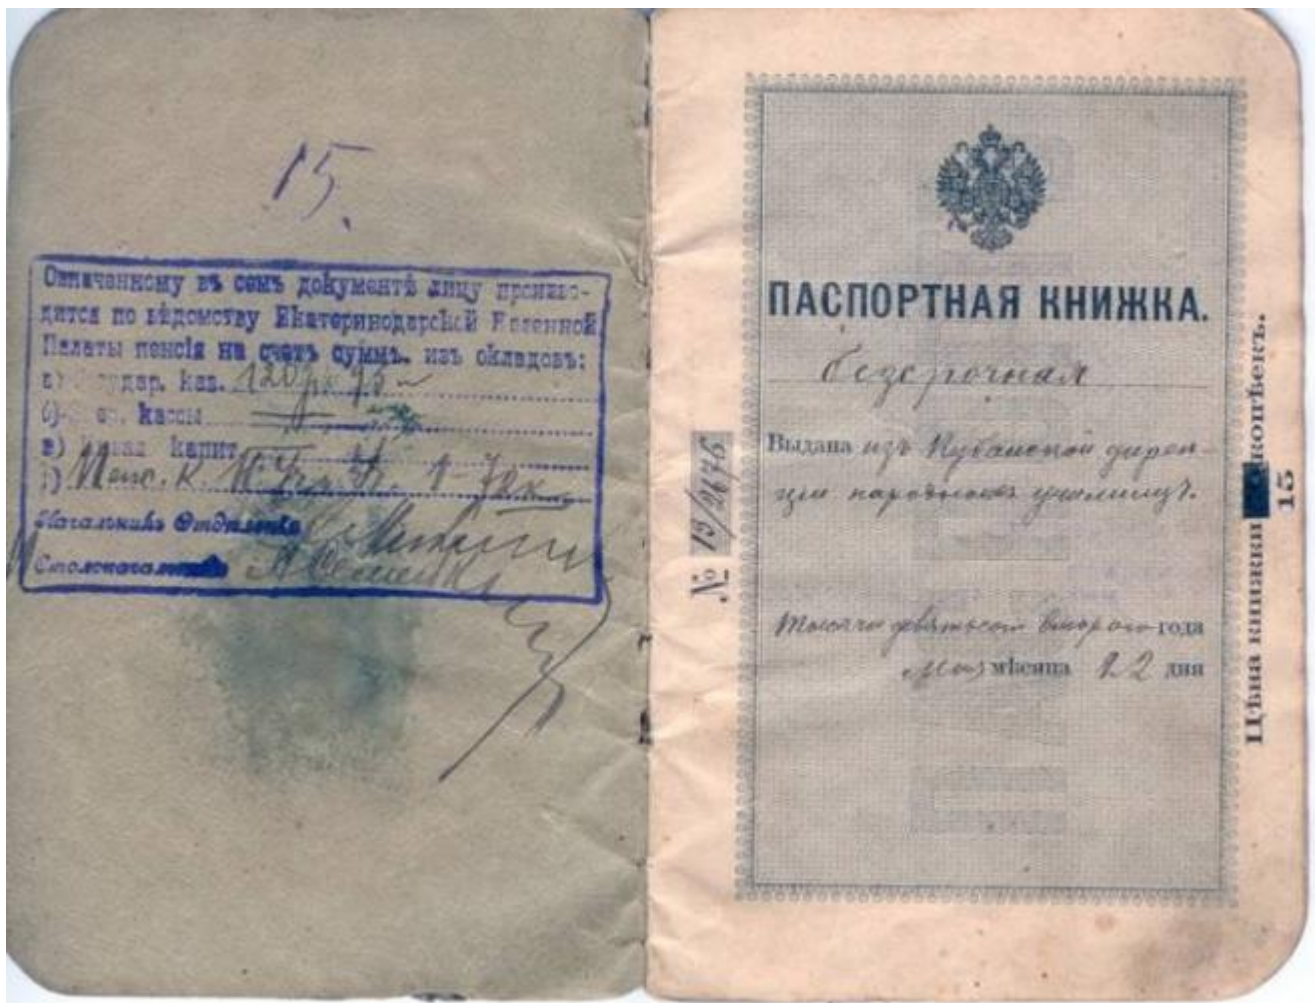 15.
Означенному въ семъ документѣ лицу производится
дится по вѣдомству Екатеринодарской Казенной
Палаты пенсія на счетъ суммъ. изъ окладовъ:
а) Государ. каз. 120 р.
б) кассы
в) капит
г) Пенс. к.
Начальникъ Отдѣленія
Столоначальникъ
ПАСПОРТНАЯ КНИЖКА.
безсрочная
Выдана изъ Кубанской дирек-
ціи народныхъ училищъ.
Тысяча девятьсот второго года
Мая мѣсяца 22 дня
№ 15/2676
Цѣна книжки копѣекъ.
15